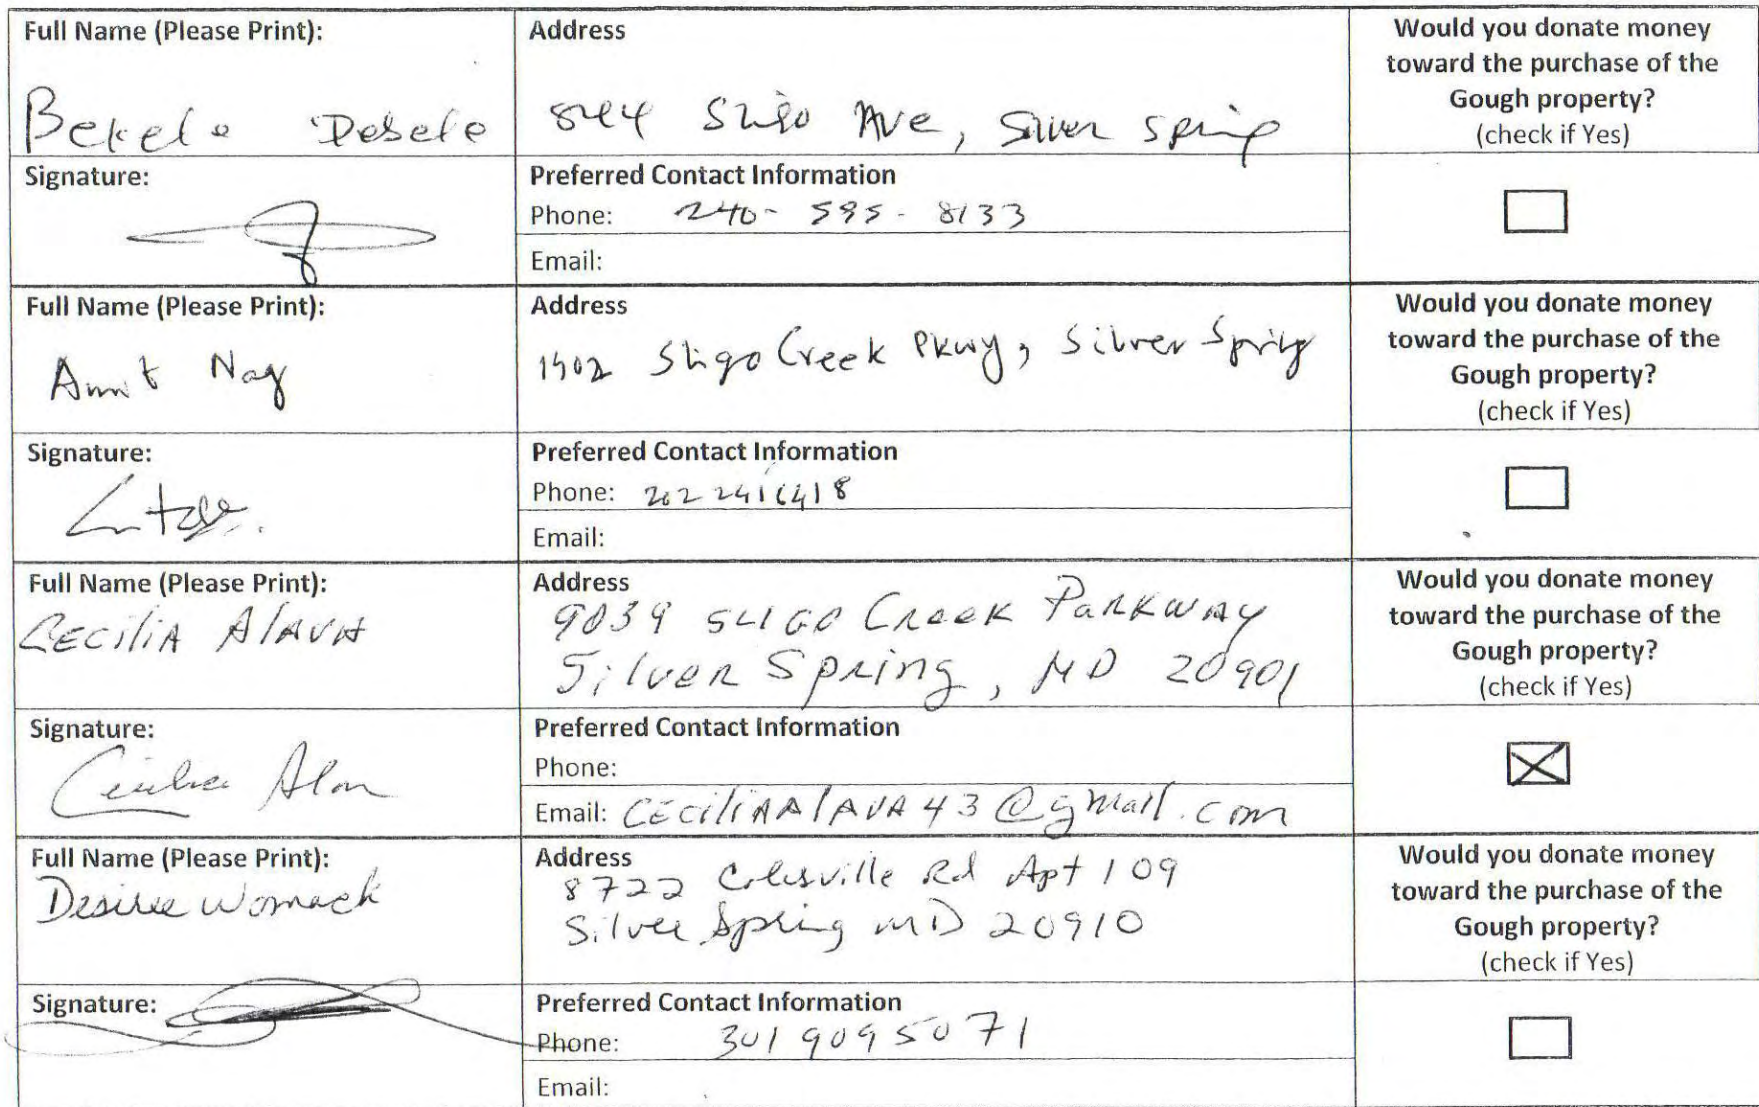 Full Name (Please Print):
Bekele Debele
Address
Sligo Ave, Silver Spring
Would you donate money
toward the purchase of the
Gough property?
(check if Yes)
Signature:
Preferred Contact Information
Phone: 240-595-8133
Email:
Full Name (Please Print):
Amit Nag
Address
1902 Sligo Creek Pkwy, Silver Spring
Would you donate money
toward the purchase of the
Gough property?
(check if Yes)
Signature:
Preferred Contact Information
Phone: 2022416418
Email:
Full Name (Please Print):
CECILIA ALAVA
Address
9039 SLIGO CREEK PARKWAY
Silver Spring, MD 20901
Would you donate money
toward the purchase of the
Gough property?
(check if Yes)
Signature:
Preferred Contact Information
Phone:
Email: CECILIAALAVA43@gmail.com
Full Name (Please Print):
Desiree Womack
Address
8722 Colesville Rd Apt 109
Silver Spring MD 20910
Would you donate money
toward the purchase of the
Gough property?
(check if Yes)
Signature:
Preferred Contact Information
Phone: 3019095071
Email: